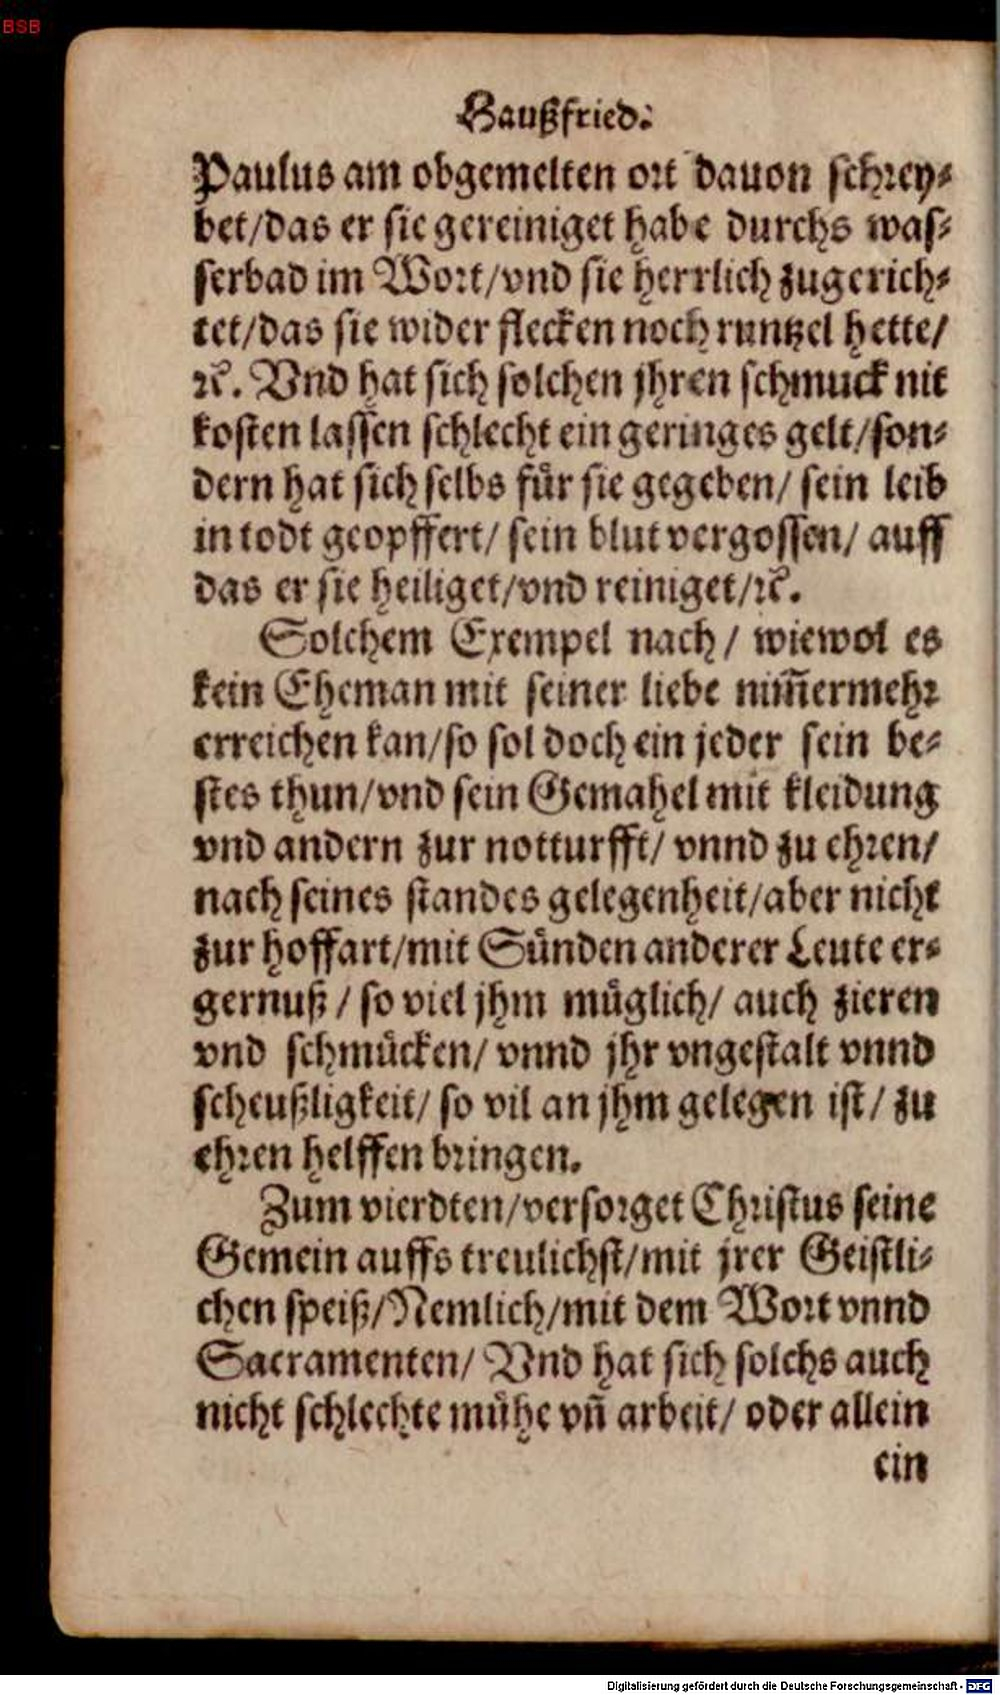 BSB
Haußfried.
Paulus am obgemelten ort dauon schrey⸗
bet/das er sie gereiniget habe durchs was⸗
serbad im Wort/vnd sie herrlich zugerich⸗
tet/das sie wider flecken noch runtzel hette/
ꝛc. Vnd hat sich solchen jhren schmuck nit
kosten lassen schlecht ein geringes gelt/son⸗
dern hat sich selbs für sie gegeben/ sein leib
in todt geopffert/ sein blut vergossen/ auff
das er sie heiliget/vnd reiniget/ꝛc.
Solchem Exempel nach/ wiewol es
kein Eheman mit seiner liebe nim̄ermehr
erreichen kan/so sol doch ein jeder sein be⸗
stes thun/vnd sein Gemahel mit kleidung
vnd andern zur notturfft/ vnnd zu ehren/
nach seines standes gelegenheit/aber nicht
zur hoffart/mit Sünden anderer Leute er⸗
gernuß/ so viel jhm müglich/ auch zieren
vnd schmücken/ vnnd jhr vngestalt vnnd
scheußligkeit/ so vil an jhm gelegen ist/ zu
ehren helffen bringen.
Zum vierdten/versorget Christus seine
Gemein auffs treulichst/mit jrer Geistli⸗
chen speiß/Nemlich/mit dem Wort vnnd
Sacramenten/ Vnd hat sich solchs auch
nicht schlechte mühe vn̄ arbeit/ oder allein
ein
Digitalisierung gefördert durch die Deutsche Forschungsgemeinschaft - DFG